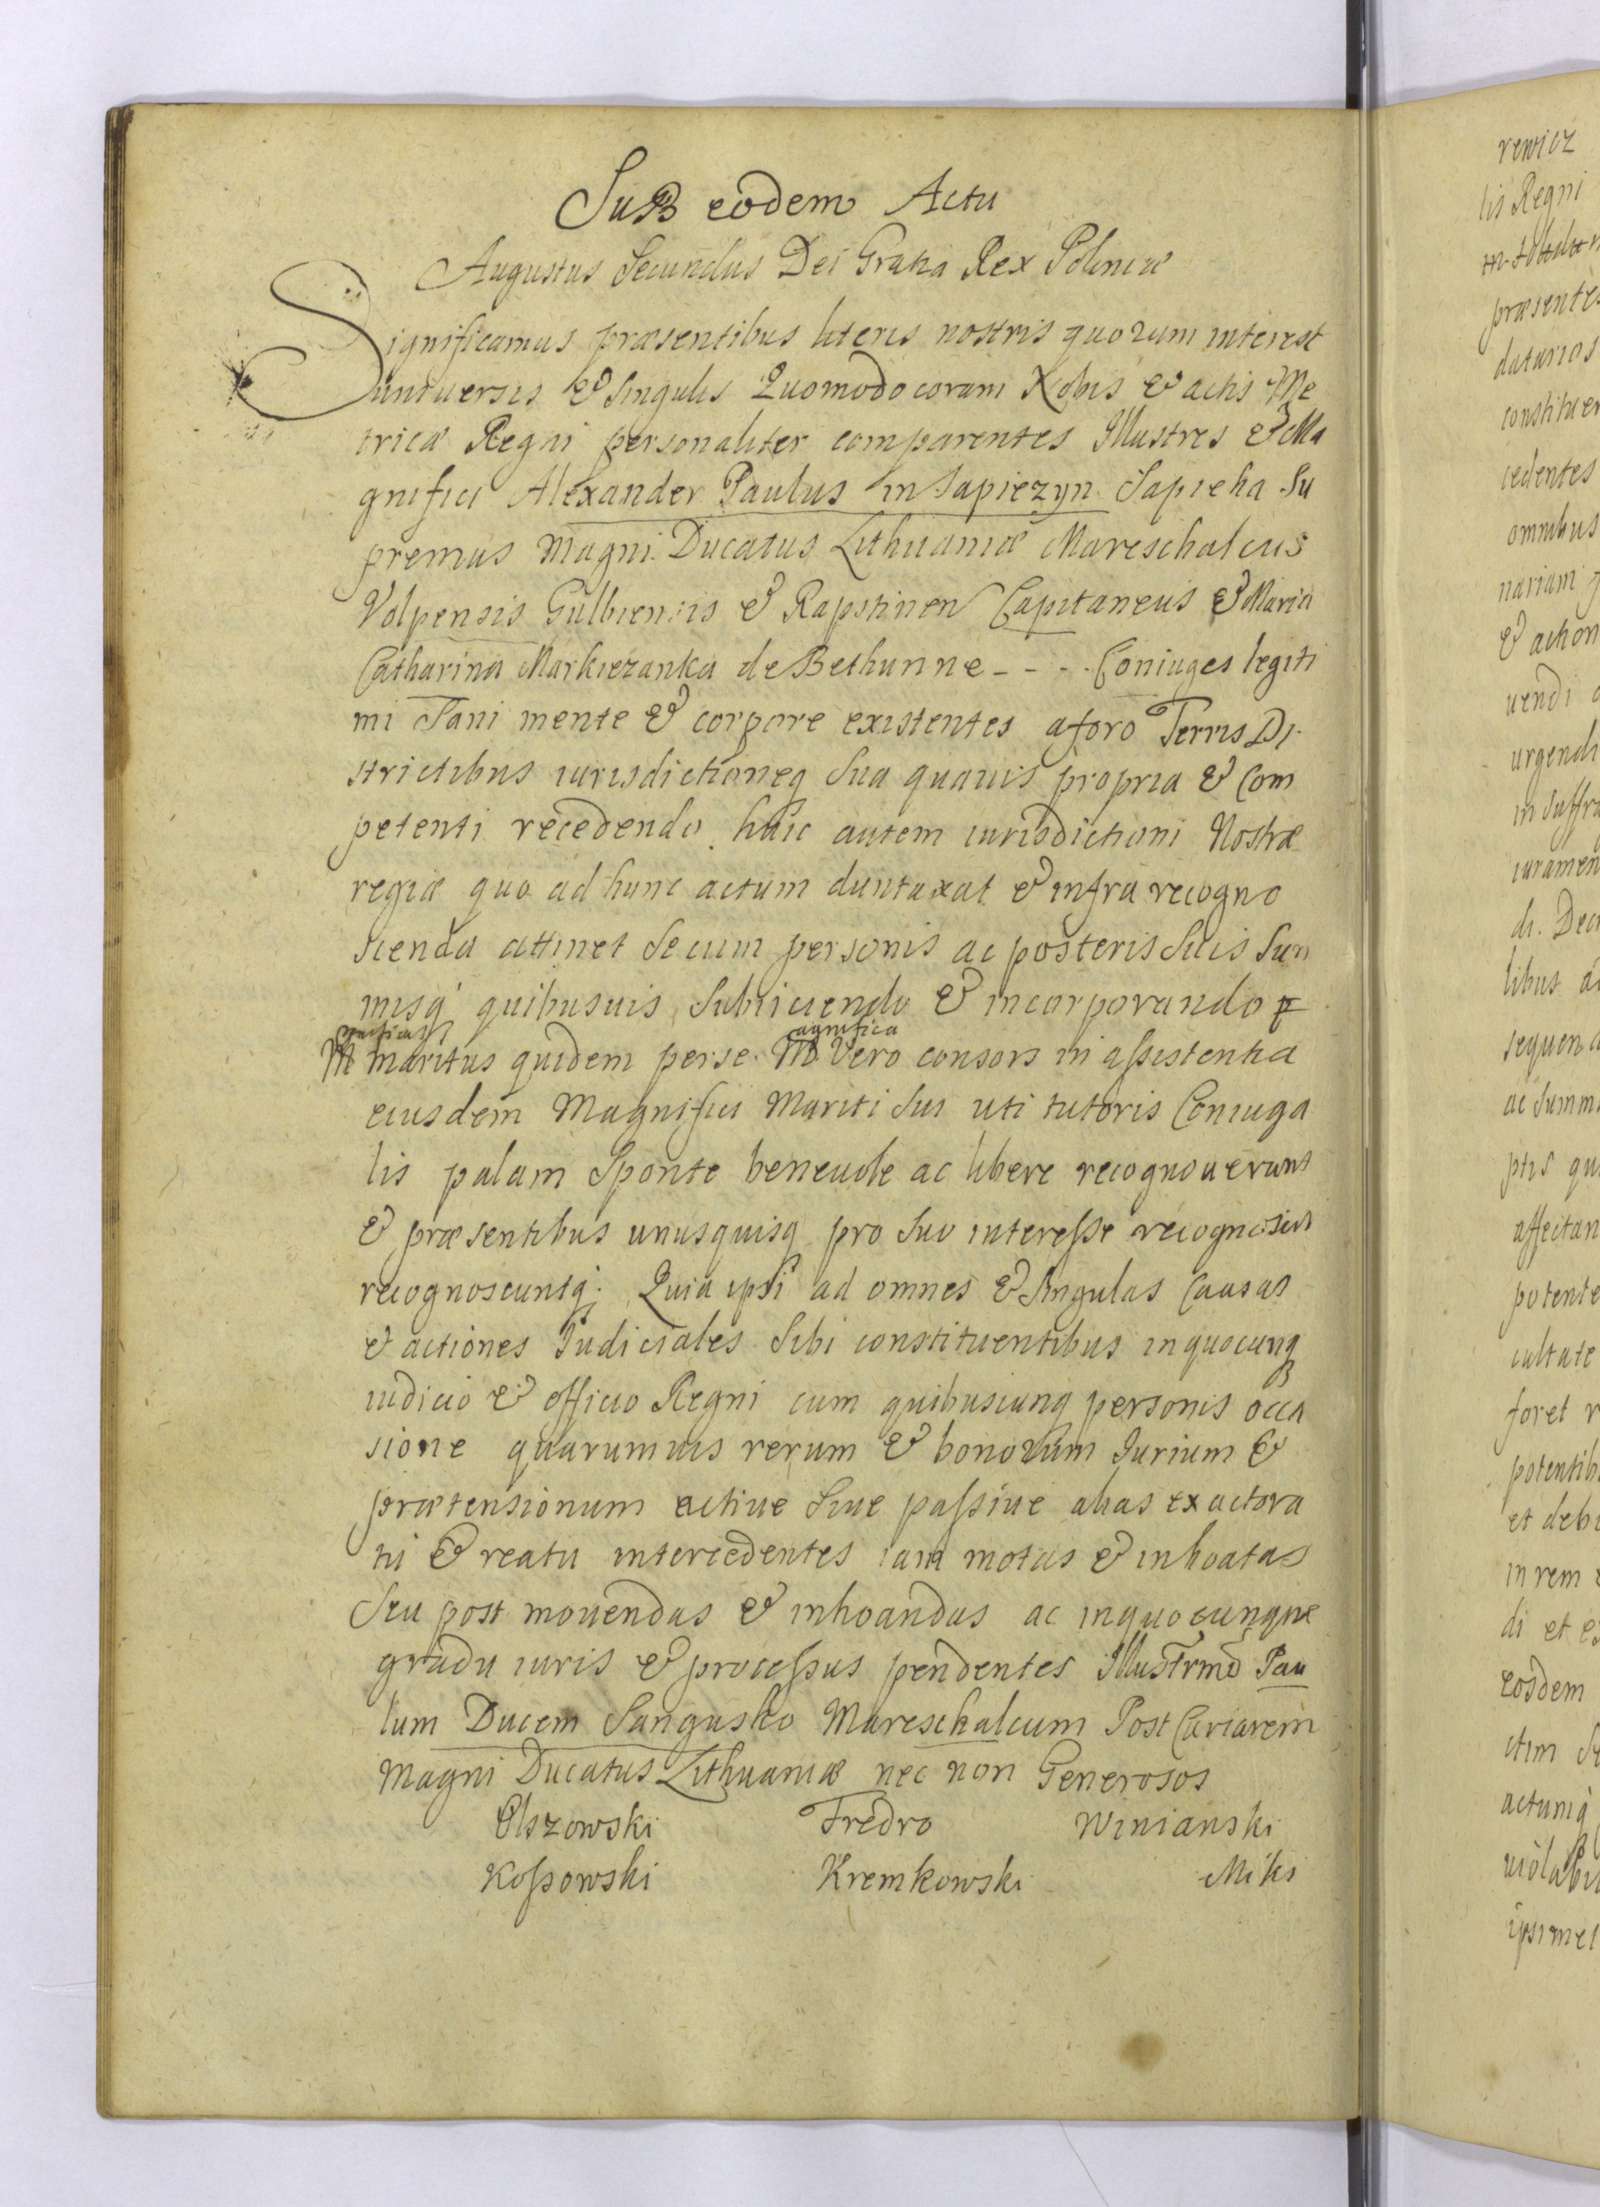 Sub eodem Actu
Augustus Secundus Dei Gratia Rex Poloniæ
Significamus præsentibus literis nostris quorum interest
universis & singulis Quomodo coram Nobis & actis Me
tricæ Regni personaliter comparentes Illustres & Ma
gnifici Alexander Paulus in Sapiezyn Sapieha Su
premus Magni Ducatus Lithuaniæ Mareschalcus
Volpensis Gulbiensis & Rapstinen Capitaneus & Maria
Catharina Markiezanka de Bethunne - - - - Coniuges legiti
mi Sani mente & corpore existentes a foro Terris Di
strictibus iurisdictioneq sua quavis propria & Com
petenti recedendo huic autem iurisdictioni Nostræ
regiæ quo ad hunc actum duntaxat & infra recogno
scenda attinet se cum personis ac posteris suis Sum
misq quibusuis subiiciendo & incorporando
Mgnificus maritus quidem per se Magnifica Vero consors in aſsistentia
eiusdem Magnifici Mariti sui uti tutoris Coniuga
lis palam sponte beneuole ac libere recognouerunt
& præsentibus unusquisq pro suo intereſse recognoscit
recognoscuntq: Quia ipsi ad omnes & singulas Causas
& actiones Iudiciales sibi constituentibus in quocunq
iudicio & officio Regni cum quibuscunq personis occa
sione quarumuis rerum & bonorum Iurium &
prætensionum actiue siue paſsiue alias ex actora
tu & reatu intercedentes iam motas & inhoatas
Seu post mouendas & inhoandas ac in quocunque
gradu iuris & proceſsus pendentes Illustrmo Pau
lum Ducem Sangusko Mareschalcum Post Curiarem
Magni Ducatus Lithuaniæ nec non Generosos
Olszowski Fredro Winianski
Koſsowski Kremkowski Miki
rewicz
lis Regni
præsentes
datarios
constituen
cedentes
omnibus
nariam
& action
uendi
urgendi
in suffra
iuramen
di. Dec
libus
sequen
ac summ
ptis qu
affectan
potente
cultate
foret r
potentib
et deb
in rem
di et e
eosdem
ctim
actumq
uiolab
ipsimet